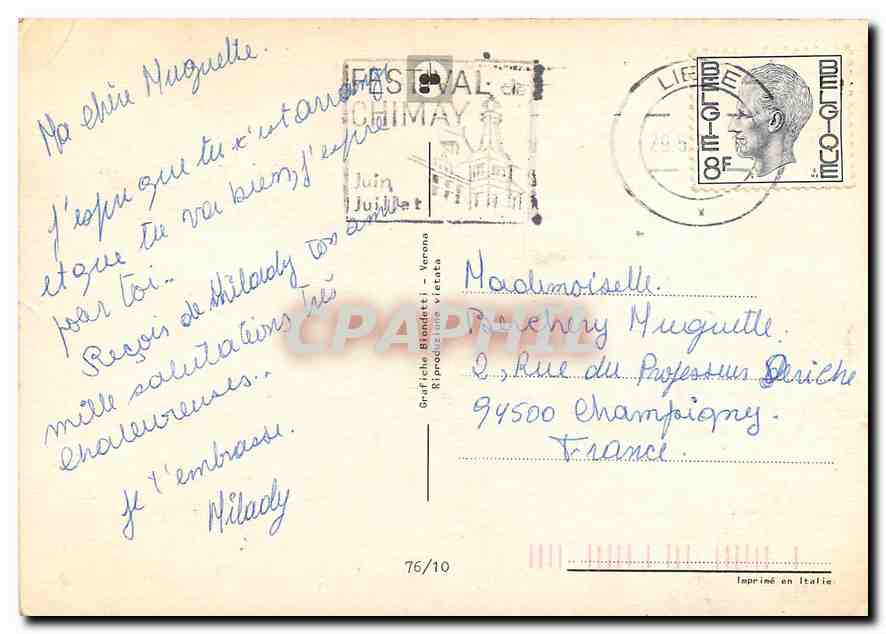 Ma chère Muguette.
J'espère que tu t'es arrangé
et que tu va bien, j'espère
pour toi..
Reçois de Milady ton amie
mille salutations très
chaleureuses..
Je t'embrasse.
Milady
FESTIVAL de
CHIMAY
Juin
Juillet
LIEGE
BELGIE 8F
BELGIQUE
Grafiche Biondetti - Verona
Riproduzione vietata
Mademoiselle.
Muguette.
2, Rue du Professeur
94500 Champigny.
France.
76/10
Imprimé en Italie
CPAPHIL